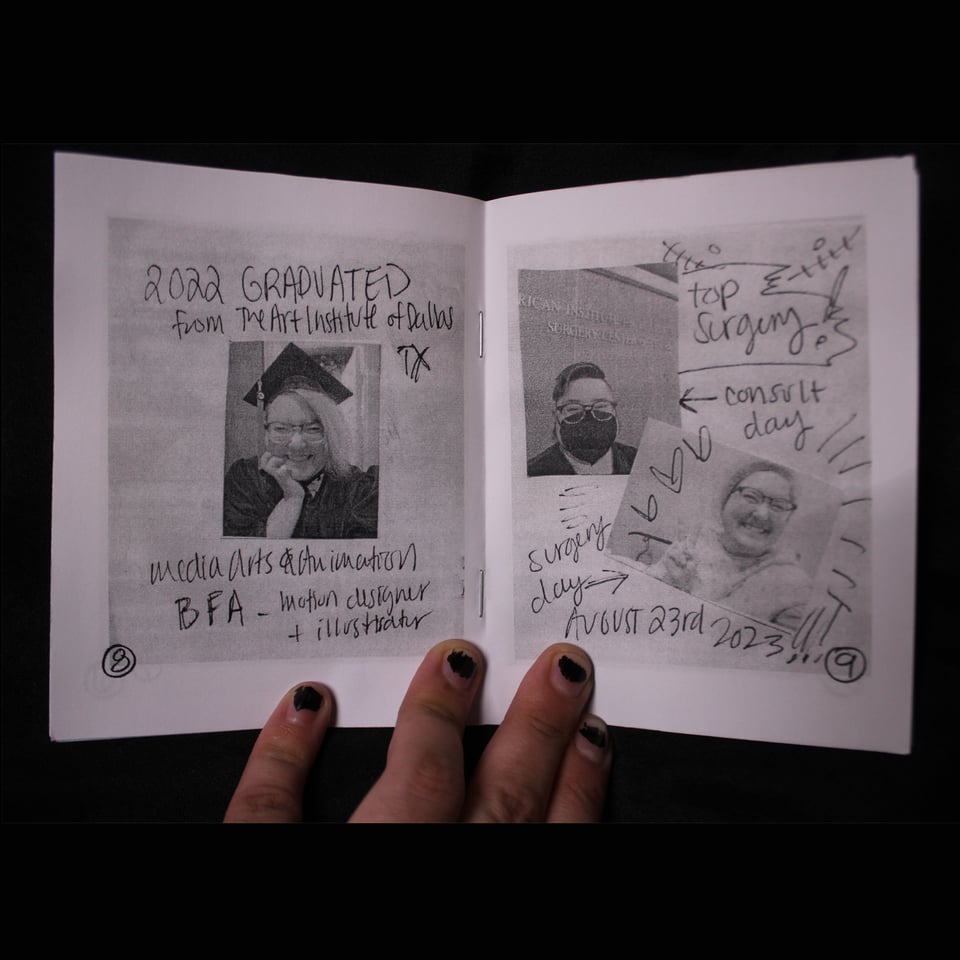 2022 GRADUATED
from The Art Institute of Dallas
TX
media Arts & Animation
BFA - motion designer
+ illustrator
8
RICAN INSTITUTE
SURGERY CENTER
top
surgery
← consult
day
surgery
day →
AUGUST 23rd 2023!!!
9